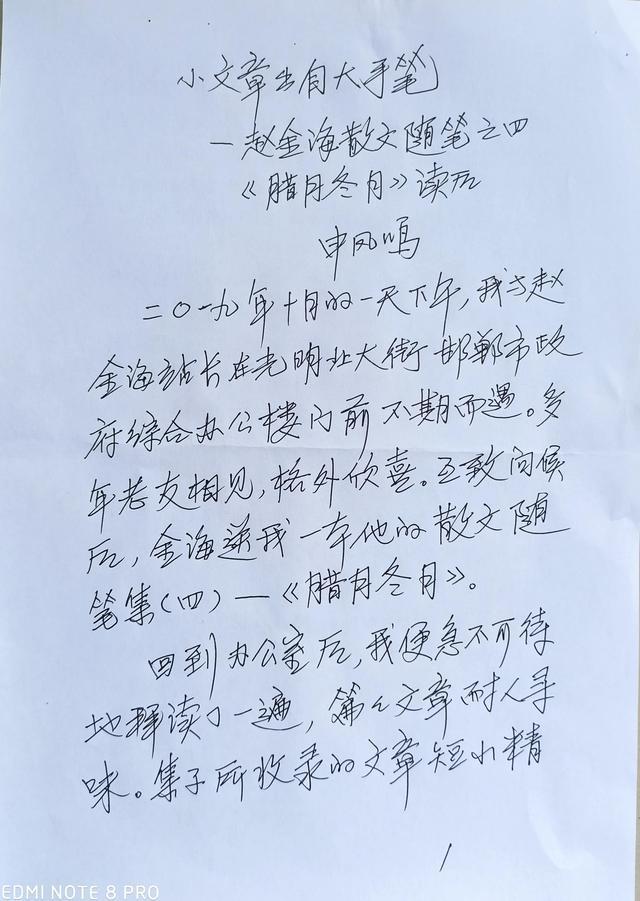 小文章出自大手笔
—赵金海散文随笔之四
《腊月冬月》读后
申凤鸣
二〇一九年十月的一天下午,我与赵
金海站长在光明北大街邯郸市政
府综合办公楼门前不期而遇。多
年老友相见,格外欣喜。互致问候
后,金海送我一本他的散文随
笔集(四)—《腊月冬月》。
回到办公室后,我便急不可待
地拜读了一遍,篇々文章耐人寻
味。集子所收录的文章短小精
1
EDMI NOTE 8 PRO